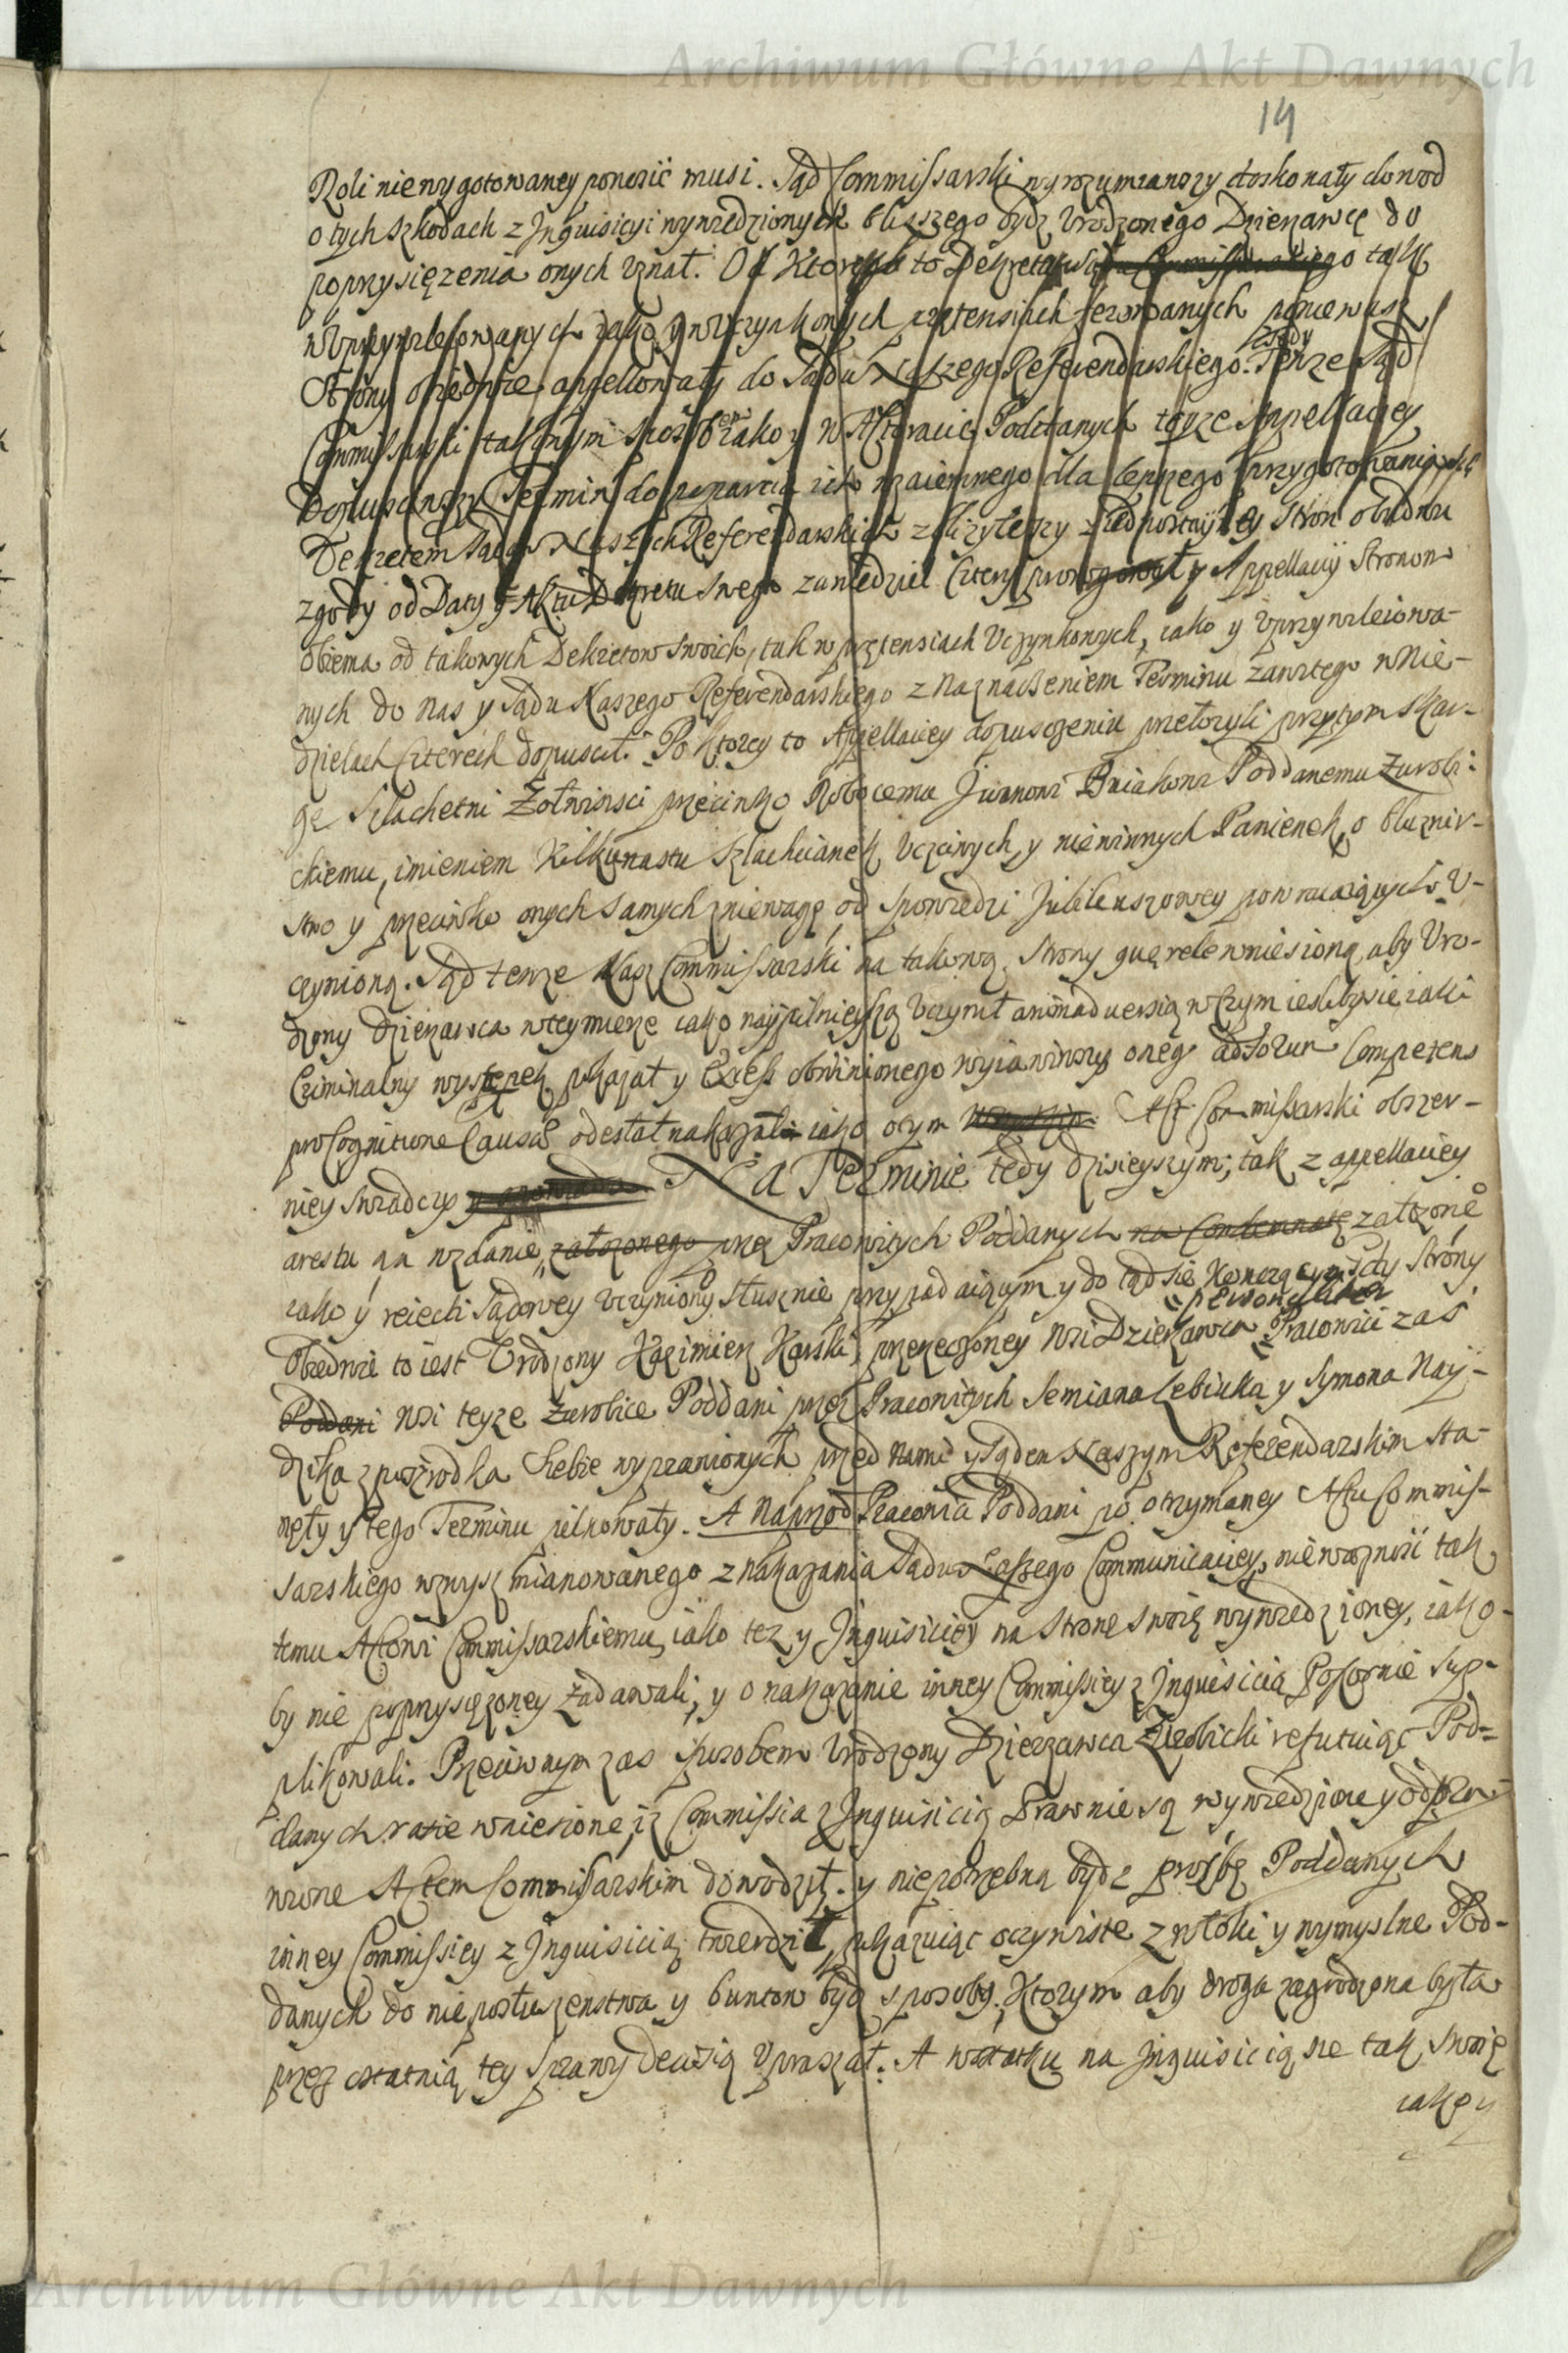 Archiwum Główne Akt Dawnych
14
Roli niewygotowaney ponosić musi. Sąd Commissarski wyrozumiawszy doskonały dowod
o tych szkodach z Inquisicyi wywiedzionych bliższego bydz Urodzonego Dzierżawcę do
poprzysiężenia onych uznał. Od ktorego to Dekretu tak
w Uprzywileiowanych iako y w Uczynkowych praetensiach ferowanych poniewasz
Strony obiedwie appellowały do Sądu Naszego Referendarskiego. Tenże Sąd
Commissarski takowym sposobem iako y w Aktoracie Poddanych teyże Appellacyey
Dopusciwszy Termin do poparcia ich wzaiemnego dla lepszego przygotowania się
Dekretem Sądow Naszych Referendarskich z Stron obudwu
zgody od Daty Aktu Dekretu swego za niedziel cztery y Appellacyi Stronom
obiema od takowych Dekretow swoich, tak w praetensiach Uczynkowych, iako y Uprzywileiowa-
nych do nas y Sądu Naszego Referendarskiego z Naznaczeniem Terminu zawitego w Nie-
dzielach czterech dopuscił. Po ktorey to Appellaciey dopuszczeniu przełożyli przytym skar-
gę Szlachetni Żołwinsci przeciwko Robocemu Iwanowi Poddanemu Zurobi-
ckiemu, imieniem Kilkunastu Szlachcianek Uczciwych, y niewinnych Panienek, o bluznir-
stwo y przeciwko onych samych zniewagę od spowiedzi Jubileuszowey powracaiących U-
czynioną. Sąd tenże Nasz Commissarski na takową Strony querelę wniesioną, aby Uro-
dzony dzierżawca w tey mierze iako naypilnieyszą Uczynił animadversią w czym iesliby się iaki
Criminalny występek pokazał y Excess obwinionego wyiawiwszy onego ad forum Competens
pro Cognitione Causae odesłał nakazał iako o tym Akt Commissarski obszer-
niey swiadczy Na Terminie tedy dzisieyszym, tak z appellaciey
arestu na wzdanie załozonego przez Pracowitych Poddanych na Condemnatę założone
iako y reiecti Sądowey Uczyniony słusznie przypadaiącym y do tąd się Konczącym gdy Strony
personaliter
Obiedwie to iest Urodzony Kazimierz Karski przerzeczoney Wsi Dzierżawca Pracowici zaś
Poddani Wsi teyże Zurobice Poddani przez Pracowitych Semiana Lebiuka y Symona Nay-
dzika z posrodka siebie wyprawionych przed Nami y Sądem Naszym Referendarskim sta-
nęły y tego Terminu pilnowały. A Naprzod Pracowici Poddani po otrzymaney Aktu Commis-
sarskiego wzwysz mianowanego z nakazania Sądu Naszego Communicaciey, nieważność tak
temu Aktowi Commissarskiemu, iako też y Inquisiciey na stronę swoię wywiedzioney, iako-
by nie poprzysiężoney zadawali, y o nakazanie inney Commissiey z Inquisicią Pokornie sup-
plikowali. Przeciwnym zas sposobem Urodzony Dzierżawca Zurobicki refutuiąc Pod-
danych ratie wniesione, iż Commissia z Inquisicią Prawnie są wywiedzione y odpra-
wione Aktem Commissarskim dowodził. y niepotrzebną bydz prozbę Poddanych
inney Commissiey z Inquisicią twierdził, pokazuiąc oczywiste zwłoki y wymyslne Pod-
danych do nieposłuszenstwa y buntow bydz sposoby, Ktorym aby droga zagrodzona była
przez ostatnią tey Sprawy decisią upraszał. A w ostatku na Inquisicią się tak swoię
iako y
Archiwum Główne Akt Dawnych